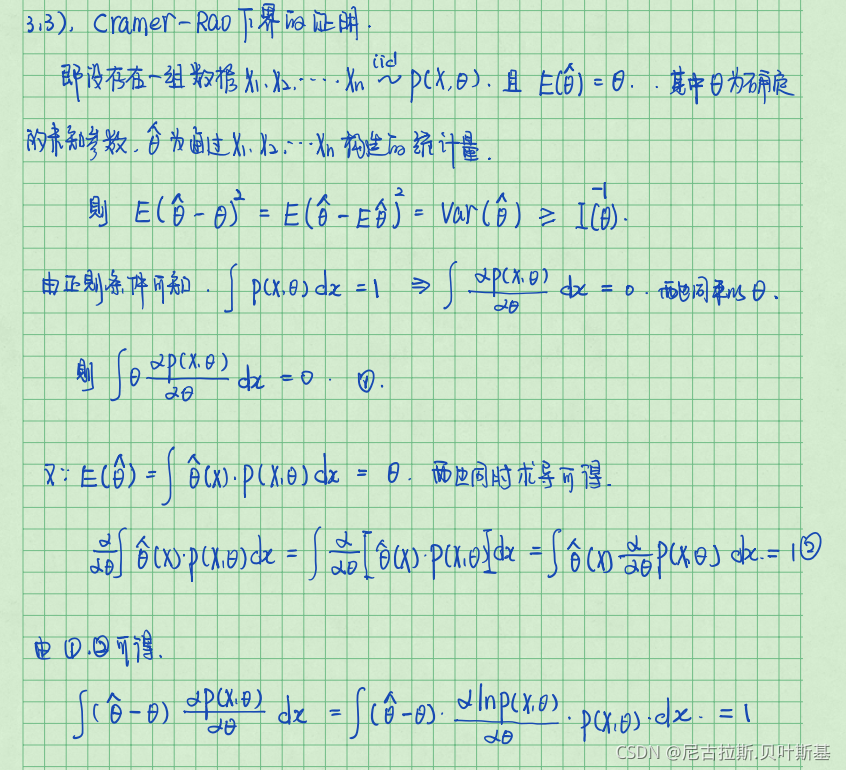 3.3), Cramer-Rao 下界的证明.
即设存在一组数据 X₁.X₂.⋯⋯Xn iid ~ p(X,θ). 且 E(θ̂) = θ. . 其中 θ 为确定
的未知参数. θ̂ 为通过 X₁.X₂.⋯Xn 构造的统计量.
则 E(θ̂ - θ)² = E(θ̂ - Eθ̂)² = Var(θ̂) ≥ I⁻¹(θ).
由正则条件可知. ∫ p(X,θ) dx = 1 ⇒ ∫ ∂p(X,θ)/∂θ dx = 0. 两边同乘以 θ.
则 ∫ θ ∂p(X,θ)/∂θ dx = 0. ①.
又∵ E(θ̂) = ∫ θ̂(X)·p(X,θ) dx = θ. 两边同时求导可得.
∂/∂θ ∫ θ̂(X)·p(X,θ) dx = ∫ ∂/∂θ [θ̂(X)·p(X,θ)] dx = ∫ θ̂(X) ∂/∂θ p(X,θ) dx. = 1 ②
由 ①.② 可得.
∫ (θ̂ - θ) ∂p(X,θ)/∂θ dx = ∫ (θ̂ - θ)· ∂lnp(X,θ)/∂θ · p(X,θ)·dx. = 1
CSDN @尼古拉斯.贝叶斯基